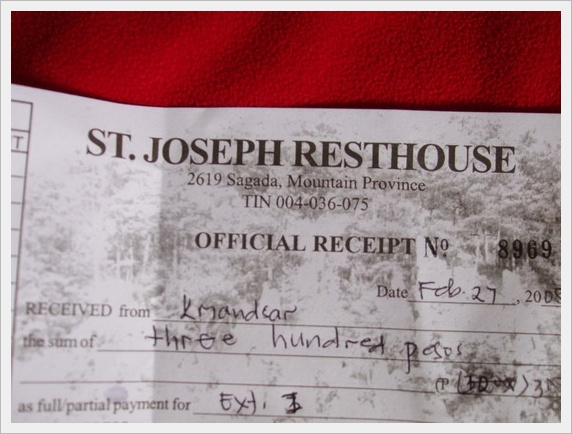 T
ST. JOSEPH RESTHOUSE
2619 Sagada, Mountain Province
TIN 004-036-075
OFFICIAL RECEIPT Nº 8969
Date Feb. 27, 200
RECEIVED from
the sum of three hundred pesos
(P
as full/partial payment for Ext.